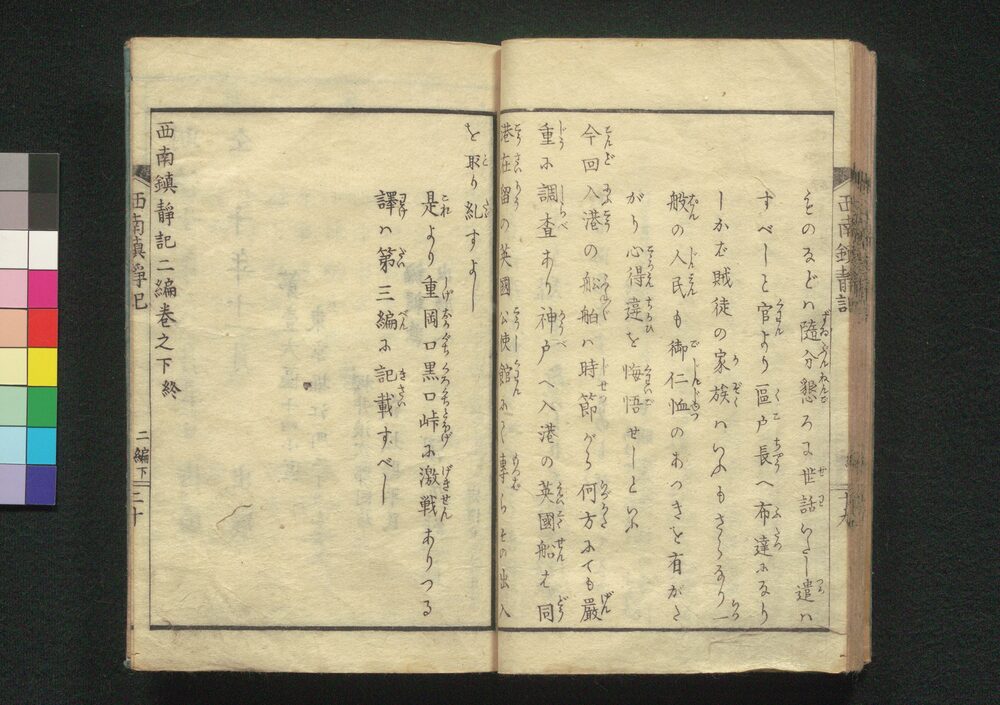 西南鎮静記
十九
ものなどハ隨分懇ろに世話いたし遣ハ
すべしと官より區戸長へ布達になり
しかバ賊徒の家族ハいふもさらなり一
般の人民も御仁恤のあつきを有がさ
がり心得違を悔悟せしといふ
今回入港の船舶ハ時節がら何方にても嚴
重に調査あり神戸へ入港の英國船も同
港在留の英國公使館にて專らその出入
を取り糺すよし
是より重岡口黒口峠に激戦ありつる
譯ハ第三編に記載すべし
西南鎮靜記二編巻之下終
西南鎮静記
二編下
二十